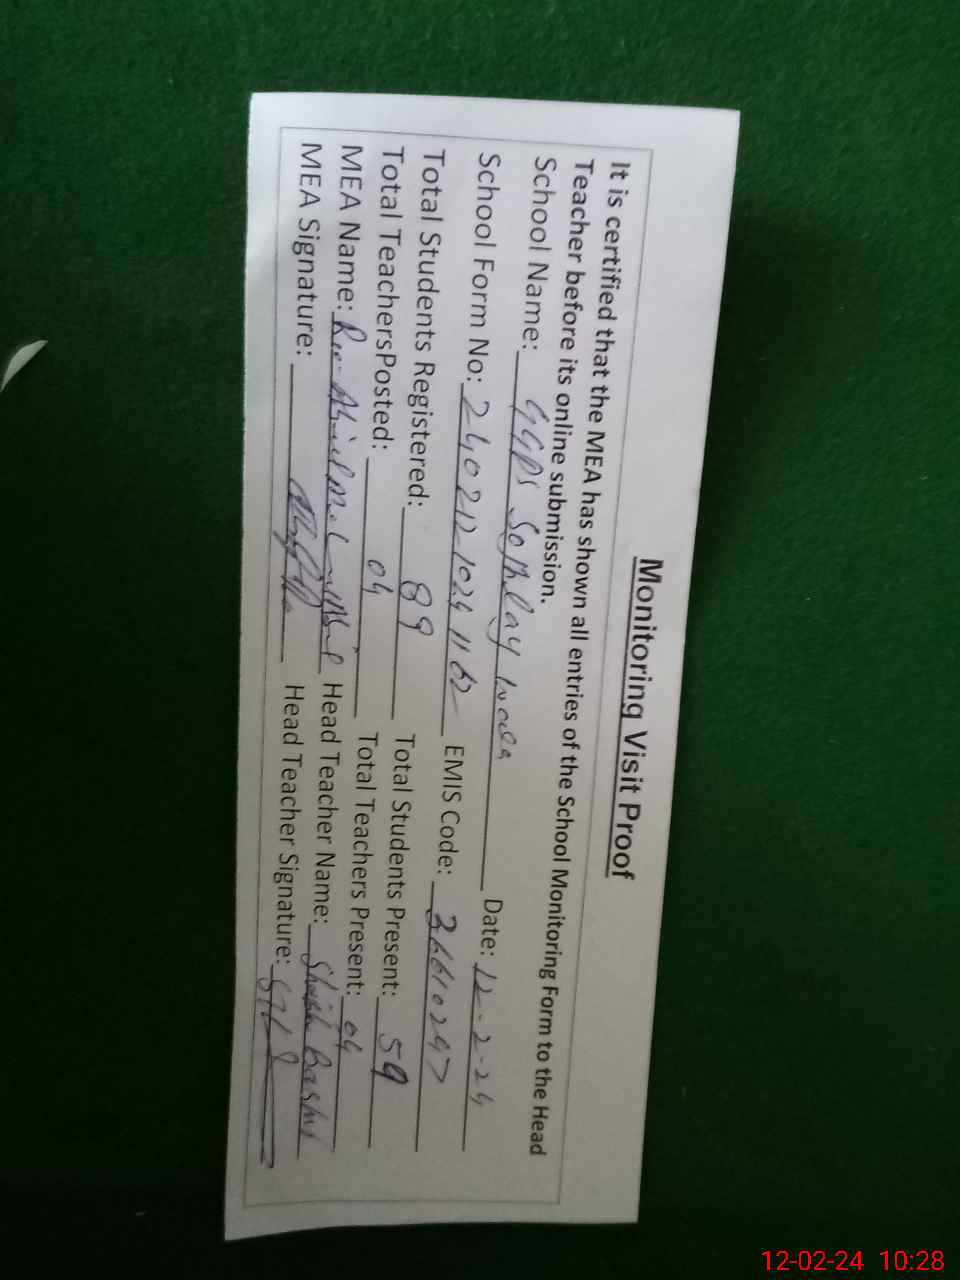 Monitoring Visit Proof
It is certified that the MEA has shown all entries of the School Monitoring Form to the Head
Teacher before its online submission.
School Name: GGPS Date: 12-2-24
School Form No: EMIS Code:
Total Students Registered: 89 Total Students Present: 59
Total TeachersPosted: 04 Total Teachers Present: 04
MEA Name: Head Teacher Name:
MEA Signature: Head Teacher Signature:
12-02-24 10:28